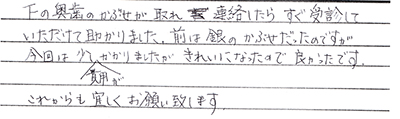 下の奥歯のかぶせが取れ 連絡したら すぐ受診して
いただけて助かりました。前は銀のかぶせだったのですが
今回は少し費用がかかりましたが きれいになったので 良かったです。
これからも宜しくお願い致します。